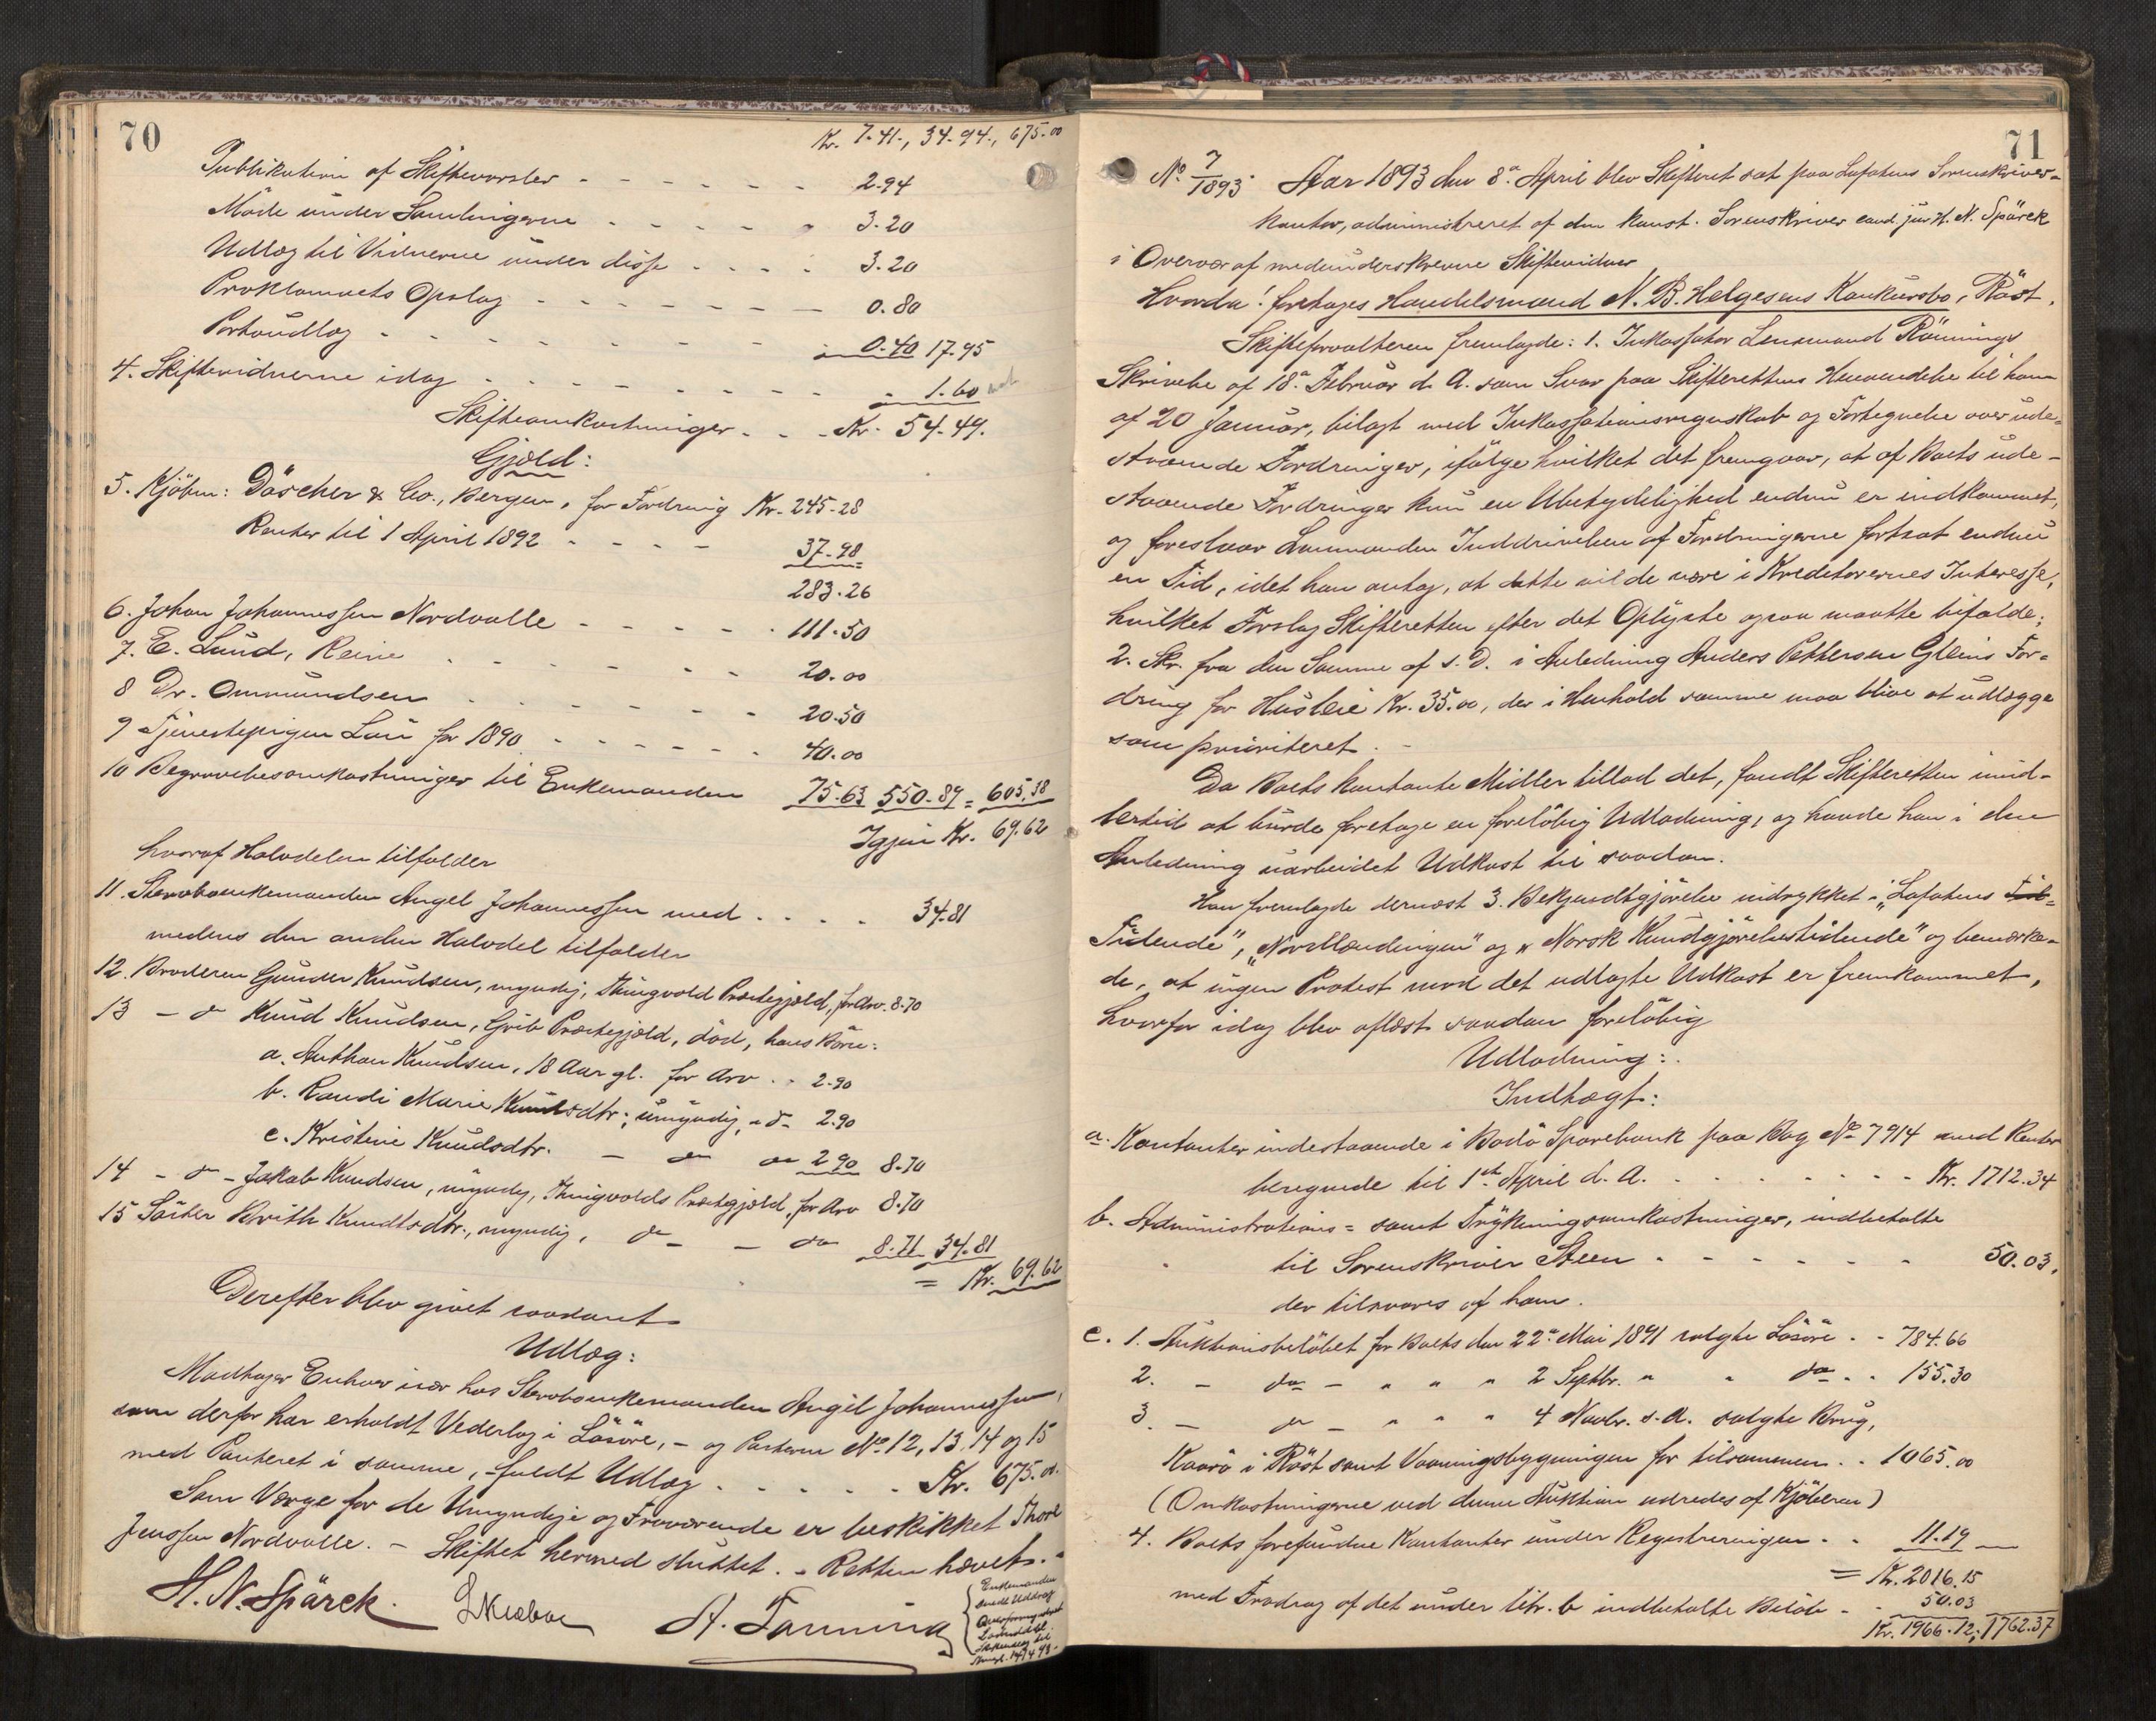 70
Kr. 7.41., 34.94., 675.00
Publikation af Skiftevarsler - - - - - - 2.94
Møde under Samlingerne - - - - - 3.20
Udlæg til Vidnerne under disse - - - - 3.20
Proklamaets Opslag - - - - - - - 0.80
Portoudlæg - - - - - - - - 0.40 17.95
4. Skiftevidnerne idag - - - - - - - - 1.60
Skifteomkostninger - - - Kr. 54.49.
Gjæld:
5. Kjøbm: Däscher & Co., Bergen, for Fordring Kr. 245.28
Renter til 1 April 1892 - - - - 37.98
283.26
6. Johan Johannessen Nordvalle - - - - - 111.50
7. E. Lund, Reine - - - - - - 20.00
8 Dr. Ommundsen - - - - - - 20.50
9 Tjenestepigen Lau for 1890 - - - - - - 40.00
10 Begravelsesomkostninger til Enkemanden 75.63 550.89 = 605.38
Igjen Kr. 69.62
hvoraf Halvdelen tilfalder
11. Stervboenkemanden Angel Johannessen med . . . . 34.81
medens den anden Halvdel tilfalder
12. Broderen Gunder Knudsen, myndig, Thingvold Præstegjæld, for Arv. 8.70
13 - do Knud Knudsen, Grib Præstegjæld, død, hans Børn:
a. Anthon Knudsen, 18 Aar gl. for Arv . . 2.90
b. Randi Marie Knudsdtr., umyndig, - do - 2.90
c. Kristine Knudsdtr. - do do 2.90 8.70
14 - do - Jakob Knudsen, myndig, Thingvolds Præstegjæld, for Arv 8.70
15 Søster Brith Knudtsdtr., myndig, do - - do 8.71 34.81
= Kr. 69.62
Derefter blev givet saadant
Udlæg:
Modtager Enhver især hos Stervboenkemanden Angel Johannessen,
som derfor har erholdt Vederlag i Løsøre, - og Parterne No. 12, 13, 14 og 15
med Panteret i samme, - fuldt Udlæg . . . . . . Kr. 675.00.
Som Værge for de Umyndige og Fraværende er beskikket Thore
Jenssen Nordvalle. - Skiftet hermed sluttet. - Retten hævet. -
H. N. Spärck. A. Tanning
Enkemanden
sendt Uddrag
71
No. 7/1893. Aar 1893 den 8de April blev Skifteret sat paa Lofotens Sorenskriver-
kontor, administreret af den konst. Sorenskriver cand. jur H. N. Spärck
i Overvær af medunderskrevne Skiftevidner
Hvorda! foretages Handelsmand N. B. Helgesens Konkursbo, Røst.
Skifteforvalteren fremlagde: 1. Inkassator Lensmand Rønnings
Skrivelse af 18de Februar d. A. som Svar paa Skifterettens Henvendelse til ham
af 20 Januar, bilagt med Inkassationsregnskab og Fortegnelse over ude-
staaende Fordringer, ifølge hvilket det fremgaar, at af Boets ude-
staaende Fordringer kun en Ubetydelighed endnu er indkommet,
og foreslaar Lensmanden Inddrivelsen af Fordringerne fortsat endnu
en Tid, idet han antog, at dette vilde være i Kreditorernes Interesse,
hvilket Forslag Skifteretten efter det Oplyste ogsaa maatte bifalde;
2. Skr. fra den Samme af s. D. i Anledning Anders Pettersen Gleins For-
dring for Husleie Kr. 35.00, der i Henhold samme maa blive at udlægge
som prioriteret. -
Da Boets kontante Midler tillod det, fandt Skifteretten imid-
lertid at burde foretage en foreløbig Udlodning, og havde han i den
Anledning uarbeidet Udkast til saadan.
Han fremlagde dernæst 3. Bekjendtgjørelse indrykket i "Lofotens Tid-
Tidende", "Nordlændingen" og "Norsk Kundgjørelsestidende" og bemærke-
de, at ingen Protest mod det udlagte Udkast er fremkommet,
hvorfor idag blev oplæst saadan foreløbig
Udlodning:
Indtægt:
a. Kontanter indestaaende i Bodø Sparebank paa Bog No 7914 med Renter
beregnede til 1ste April d. A. . . . . . . . . . Kr. 1712.34
b. Administrations- samt Trykningsomkostninger, indbetalte
til Sorenskriver Steen - - - - - - 50.03,
der tilsvares af ham.
c. 1. Auktionsbeløbet for Boets den 22de Mai 1891 solgte Løsøre . - 784.66
2. - do - " " " 2 Septbr. " " do . . 155.30
3. - do - " " " 4 Novbr. s. A. solgte Brug,
Kaarø i Røst samt Vaaningsbygningen for tilsammen . . 1065.00
(Omkostningerne ved denne Auktion udredes af Kjøberen)
4. Boets forefundne Kontanter under Registreringen . . 11.19
= Kr. 2016.15
med Fradrag af det under litr. b indbetalte Beløb - - 50.03
Kr. 1966.12; 1762.37